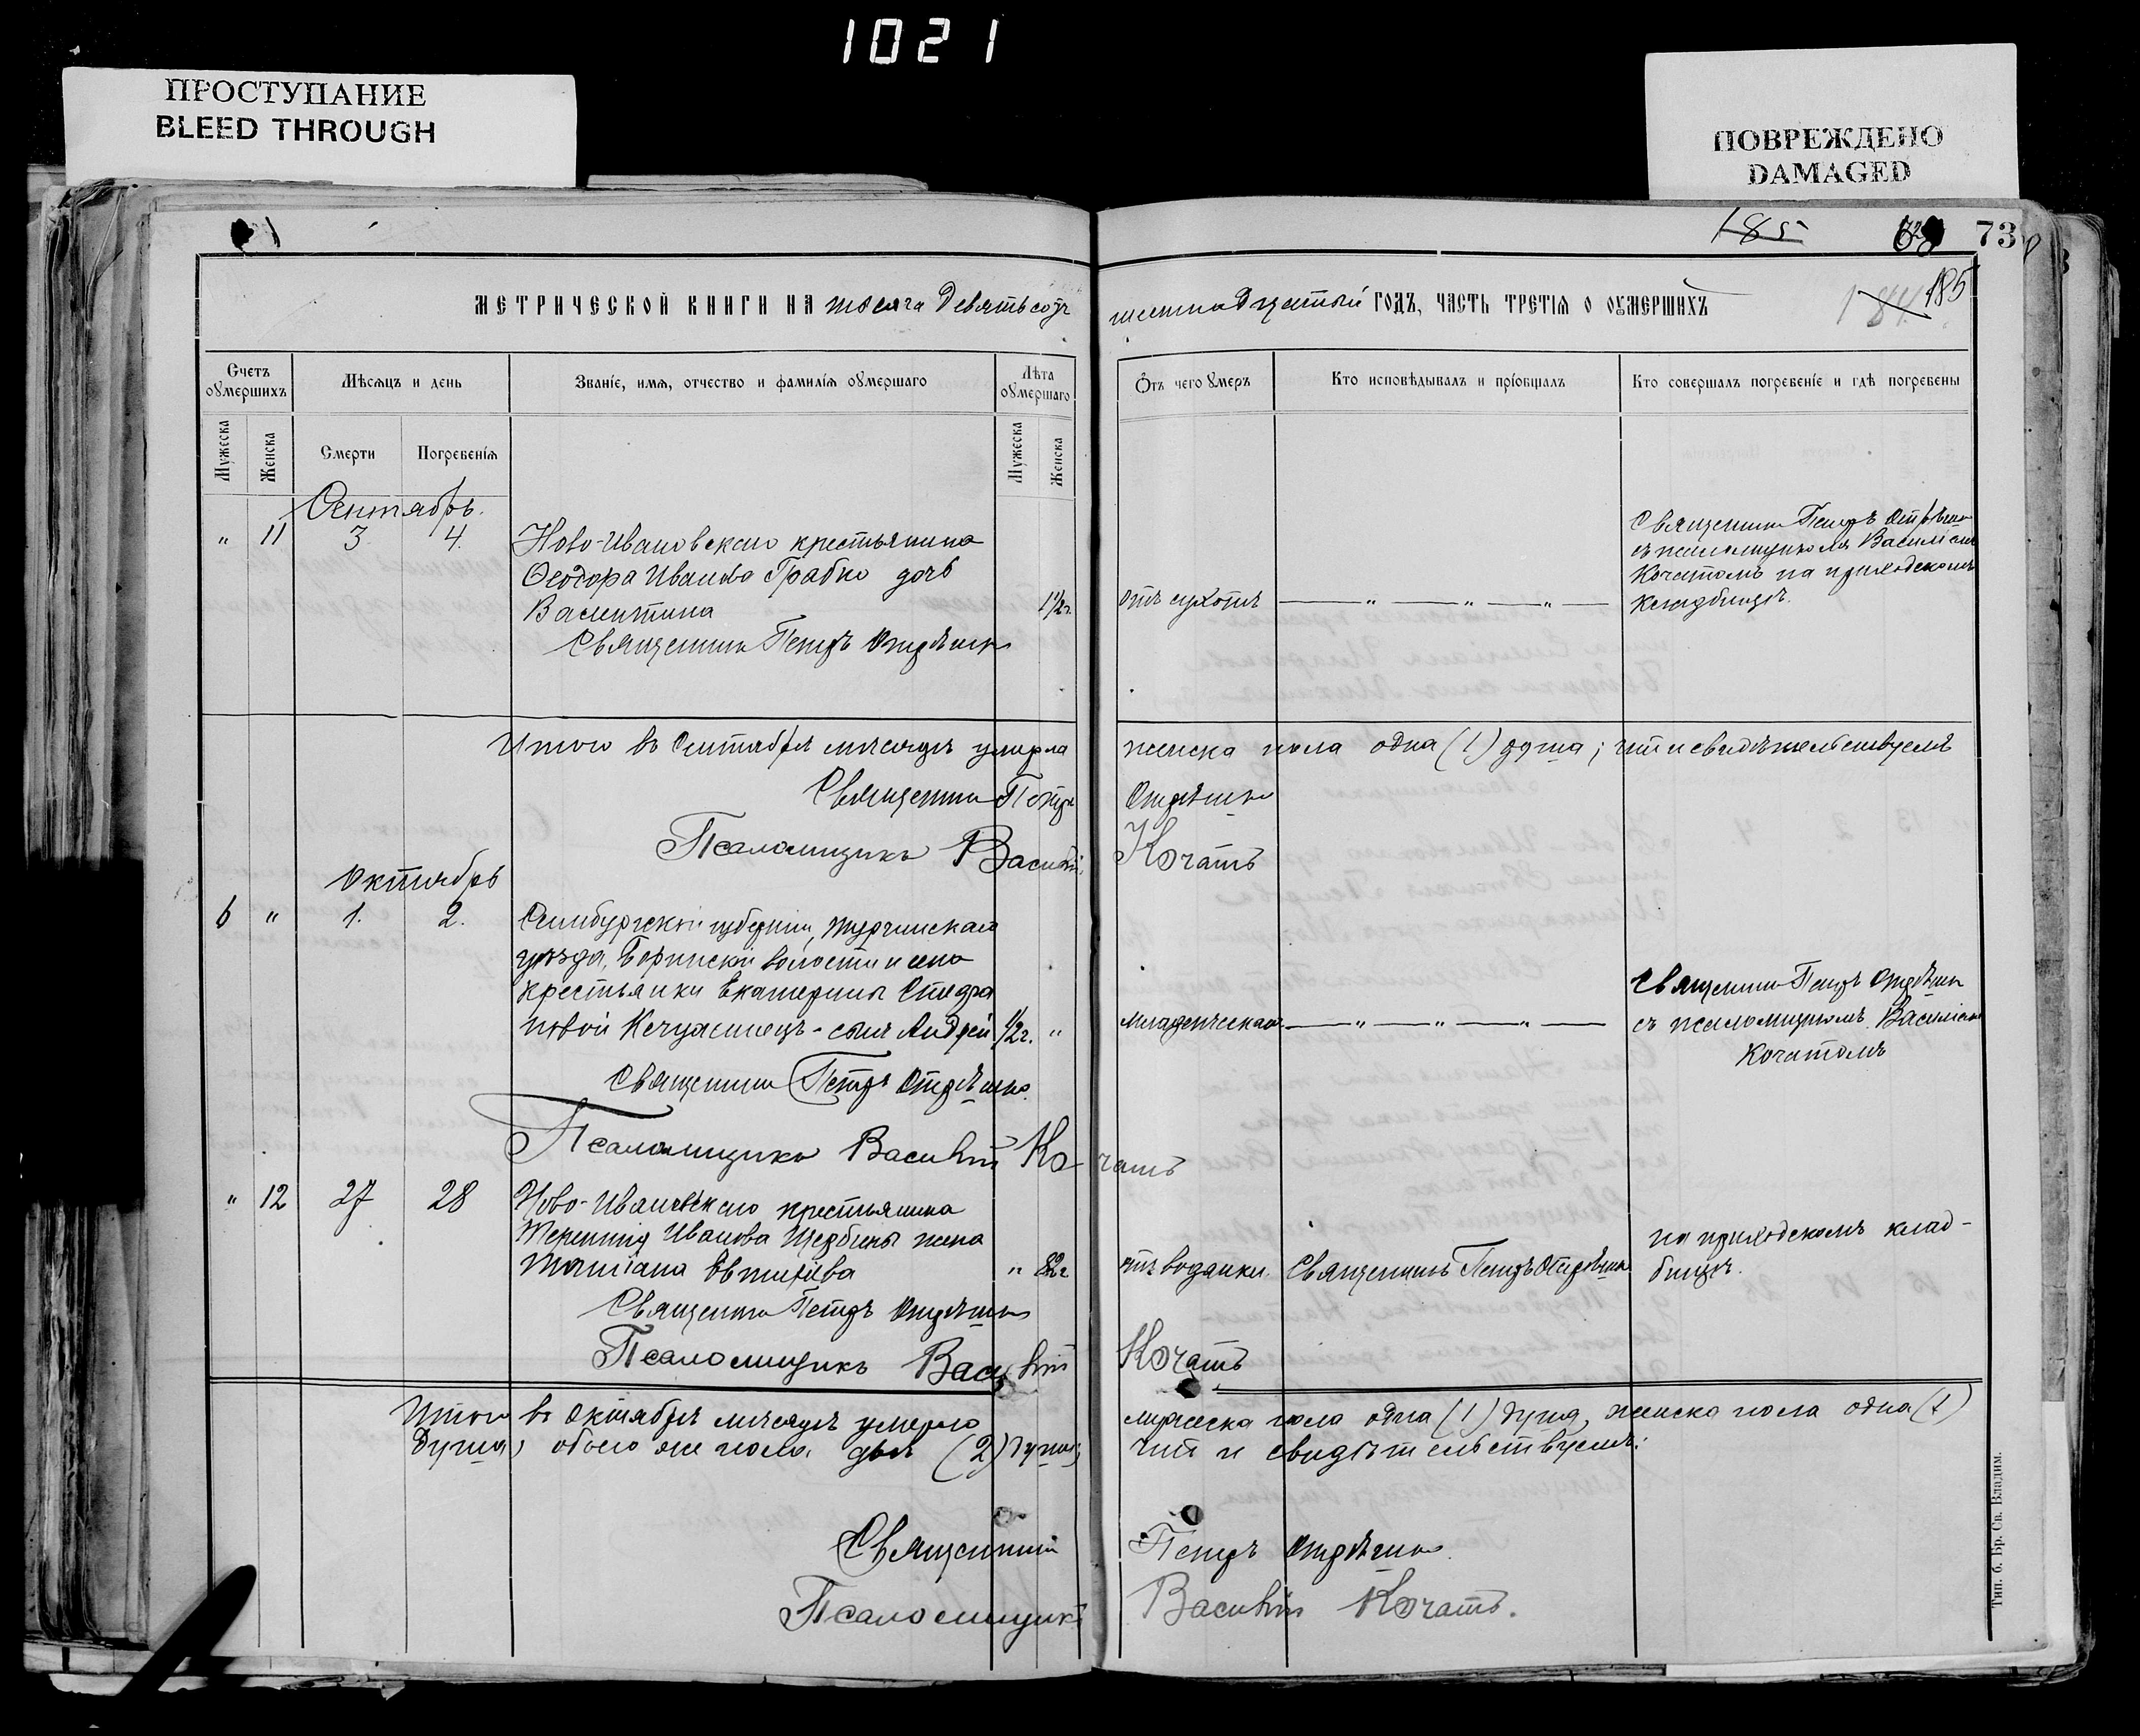 1021
ПРОСТУПАНИЕ
BLEED THROUGH
ПОВРЕЖДЕНО
DAMAGED
185
73
185
МЕТРИЧЕСКОЙ КНИГИ НА тысяча девятьсотъ
шестнадцатый ГОДЪ, ЧАСТЬ ТРЕТІЯ О ОУМЕРШИХЪ
Счетъ оумершихъ
Мѣсяцъ и день
Званіе, имя, отчество и фамилія оумершаго
Лѣта оумершаго
Отъ чего оумеръ
Кто исповѣдывалъ и пріобщалъ
Кто совершалъ погребеніе и гдѣ погребены
Мужеска
Женска
Смерти
Погребенія
Мужеска
Женска
Сентябрь.
" 11 3 4.
Ново-Ивановскаго крестьянина
Ѳеодора Иванова Грабко дочь
Валентина
1½г.
Священникъ Петръ
отъ сухотъ — " — " — " —
Священникъ Петръ
съ псаломщикомъ Василіемъ
Кочатомъ на приходскомъ
кладбищѣ.
Итого въ Сентябрѣ мѣсяцѣ умерла
женска пола одна (1) душа; что и свидѣтельствуемъ
Священникъ Петръ
Псаломщикъ Василій Кочатъ
Октябрь
6 " 1. 2.
губерніи,
уѣзда, волости и села
крестьянки Екатерины
сынъ Андрей ½г. "
младенческая — " — " — " —
Священникъ Петръ
съ псаломщикомъ Василіемъ
Кочатомъ
Священникъ Петръ
Псаломщикъ Василій Кочатъ
" 12 27 28
Ново-Ивановскаго крестьянина
Терентія Иванова Щербины жена
Татіана Евтихіева
" 82г
отъ водянки. Священникъ Петръ
на приходскомъ клад-
бищѣ.
Священникъ Петръ
Псаломщикъ Василій Кочатъ
Итого въ Октябрѣ мѣсяцѣ умерло
мужеска пола одна (1) душа, женска пола одна (1)
душа, обоего же пола двѣ (2) души,
что и свидѣтельствуемъ:
Священникъ Петръ
Псаломщикъ Василій Кочатъ.
Тип. б. Бр. Св. Владим.